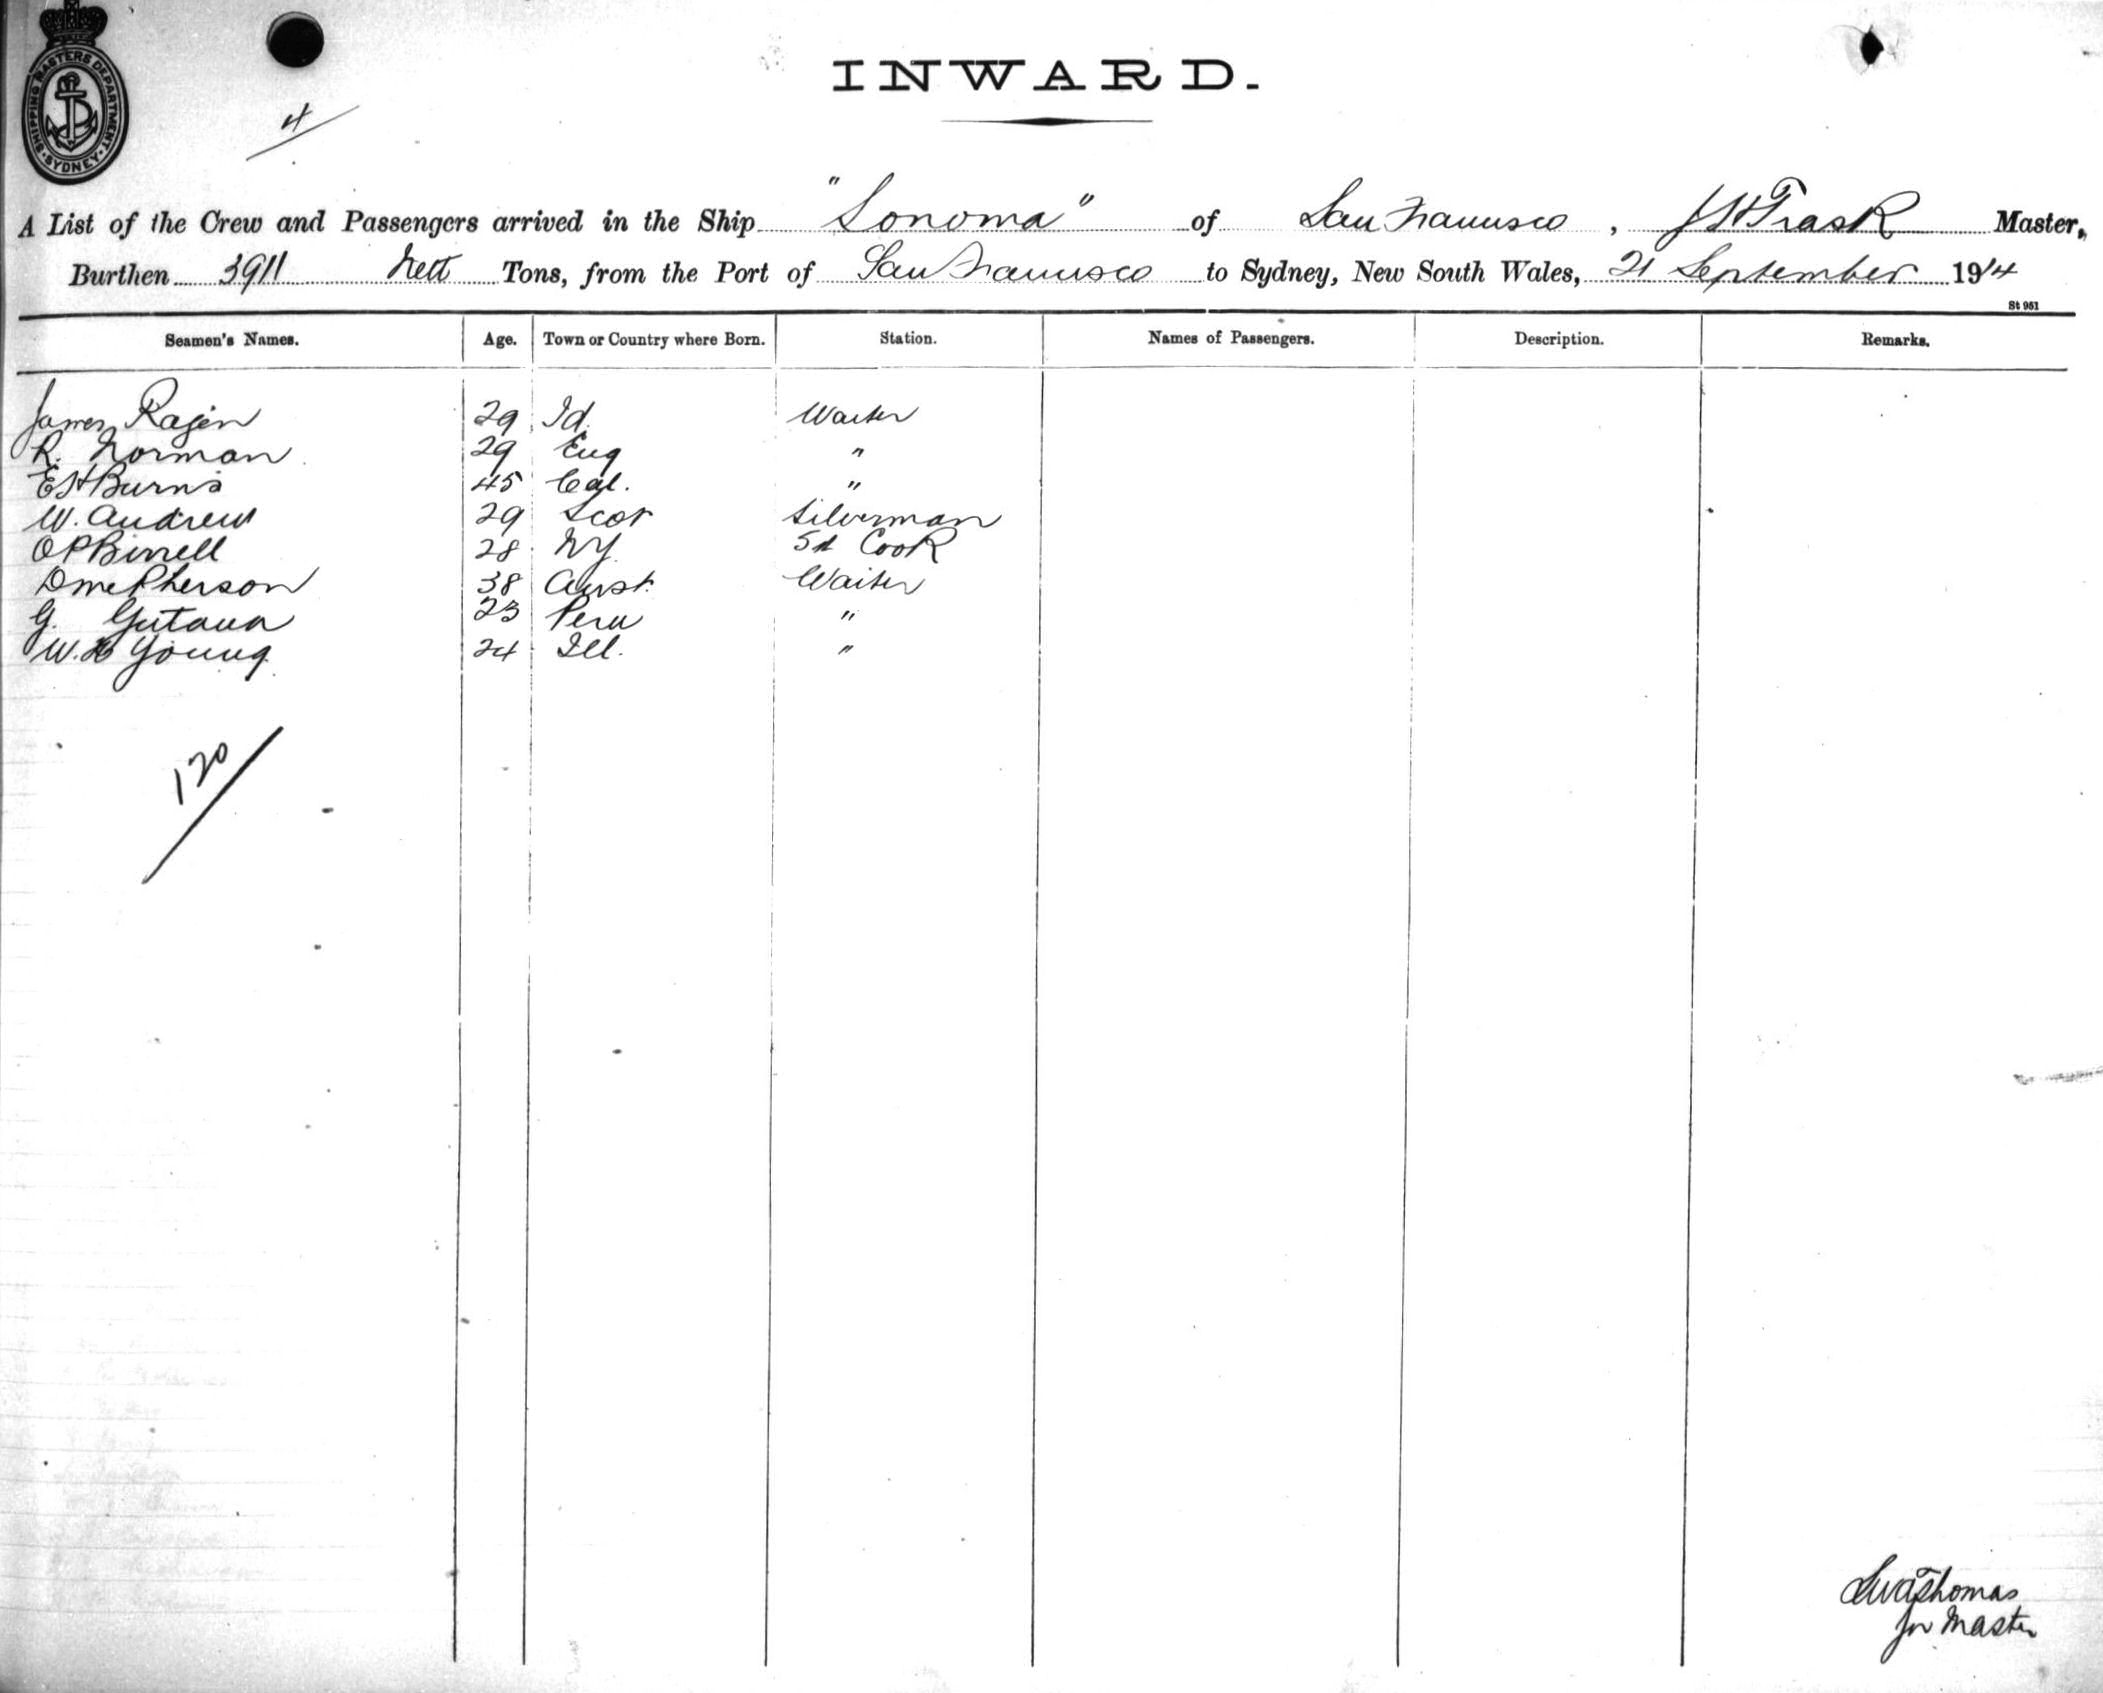 SHIPPING MASTERS DEPARTMENT · SYDNEY ·
4
INWARD.
A List of the Crew and Passengers arrived in the Ship "Sonoma" of San Francisco, J H Trask Master,
Burthen 3911 Nett Tons, from the Port of San Francisco to Sydney, New South Wales, 21 September 1914
St 951
Seamen's Names. Age. Town or Country where Born. Station. Names of Passengers. Description. Remarks.
James 29 Id. Waiter
R. Norman 29 Eng "
E H Burns 45 Cal. "
W. Andrew 29 Scot Silverman
O P Birrell 28 NY. Cook
D McPherson 38 Aust. Waiter
G. 23 Peru "
W. Young 24 Ill. "
120
Thomas
for Master